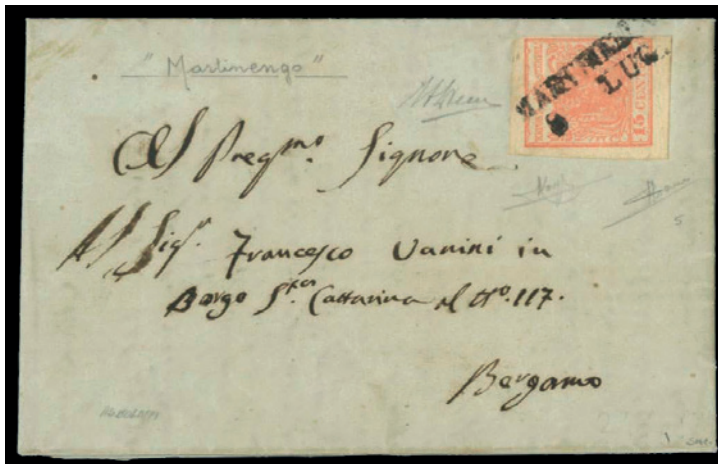 "Martinengo"
MARTINEN
8 LUG.
15 CENT
Al Pregmo. Signore
Al Sigr. Francesco Vanini in
Borgo Sta. Cattarina al No. 117.
Bergamo
5
1